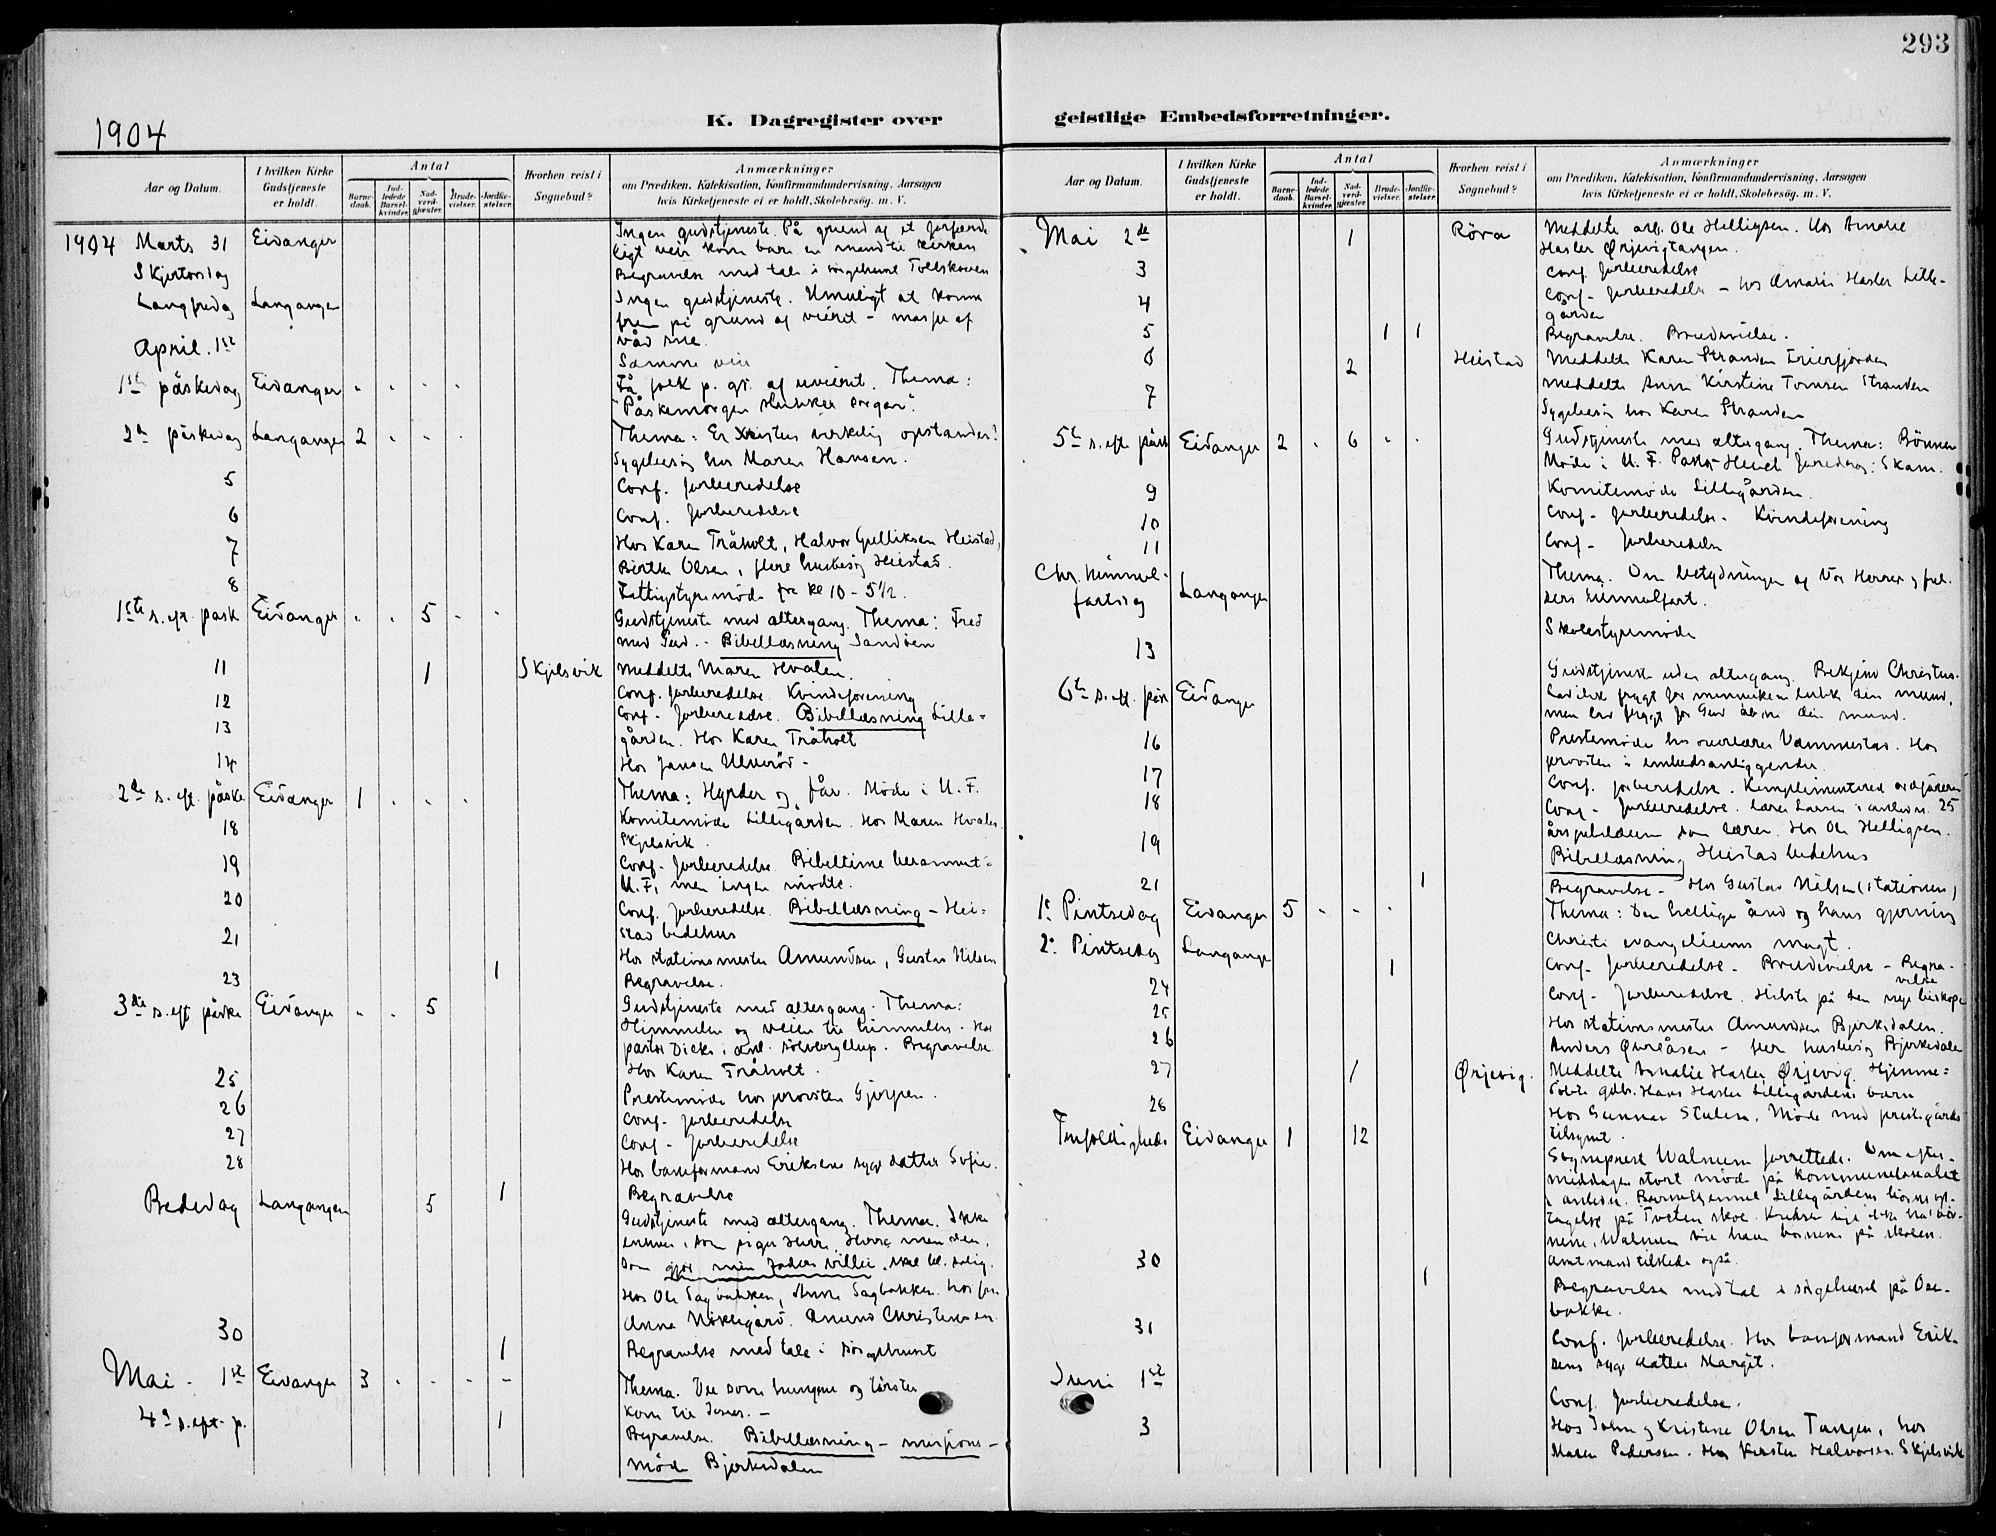 293
1904
K. Dagregister over
geistlige Embedsforretninger.
Aar og Datum.
I hvilken Kirke Gudstjeneste er holdt.
Antal
Barnedaab.
Indledede Barselkvinder.
Nadverdgjester.
Brudevielser.
Jordfæstelser.
Hvorhen reist i Sognebud?
Anmærkninger
om Prædiken, Katekisation, Konfirmandundervisning, Aarsagen
hvis Kirketjeneste ei er holdt, Skolebesøg. m. V.
1904 Marts 31 Eidanger Ingen gudstjeneste. På grund af et forfærde
ligt veir kom bare en mand til kirken
Skjertorsdag Begravelse med tale i sørgehuset
Langfredag Langangen Ingen gudstjeneste. Umuligt at komme
frem på grund af veiret - masse af
våd sne.
April. 1st Samme veir
1ste påskedag Eidanger Få folk p. gr. af uveiret. Thema:
"Påskemorgen slukker sorgen".
2den påskedag Langangen 2 Thema: Er Xristus virkelig opstanden?
Sygebesøg hos Maren Hansen.
5 Conf. forberedelse
6 Conf. forberedelse
7 Hos Karen Tråholt, Halvor Gulliksen Heistad,
Berthe Olsen, flere husbesøg Heistad.
8 Fattigstyremøde fra kl 10 - 5 1/2.
1ste s. eft. påsk Eidanger 5 Gudstjeneste med altergang. Thema: Fred
med Gud. - Bibellæsning Sandøen
11 1 Skjelsvik Meddelte Maren Hvalen.
Conf. forberedelse. Kvindeforening
12 Conf. forberedelse. Bibellæsning Lille-
13 gården. Hos Karen Tråholt
14 Hos Jansen
2den s. eft. påske Eidanger 1 Thema: Hyrder og får. Møde i U. F.
18 Komitemøde Lillegården. Hos Maren Hvalen
Skjelsvik.
19 Conf. forberedelse. Bibeltime berammet
U.F. men ingen mødte.
20 Conf. forberedelse. Bibellæsning - Hei-
stad bedehus
21 Hos stationsmester Amundsen, Gustav Nilsen
23 1 Begravelse.
3die s. eft påske Eidanger 5 Gudstjeneste med altergang. Thema:
Himmelen og veien til himmelen. Hos
pastor i anl. sølvbryllup. Begravelse
25 Hos Karen Tråholt.
26 Prestemøde hos provsten Gjerpen.
Conf. forberedelse
27 Conf - forberedelse
28 Hos baneformand Eriksens syge datter Sofie.
1 Begravelse
Bededag Langangen 5 Gudstjeneste med altergang. Thema. Ikke
enhver, som siger Herre, Herre men den,
som gjør min faders villie, skal bl. salig.
Hos Ole Sagbakken, Anne Sagbakken. hos fru
Anna Amund Christensen
30 1 Begravelse med tale i sørgehuset
Mai. 1st Eidanger 3 Thema. De som hungrer og tørster
kom til Jesus. -
4de s. eft. p. 1 Begravelse. Bibellæsning - missions-
møde Bjerkedalen
Mai 2de 1 Röra Meddelte arb. Ole Helligsen. Hos Amalie
Hasler Ørjevigtangen.
3 Conf. forberedelse
4 Conf - forberedelse - hos Amalie Hasler Lille-
gården
5 1 1 Begravelse. Brudevielse.
6 2 Heistad Meddelte Karen Stranden
7 Meddelte Anne Kirstine Stranden
Sygebesøg hos Karen Stranden
5te s. eft påsk Eidanger 2 6 Gudstjeneste med altergang. Thema: Bönnen
Møde i U. F. Pastor foredrag: Skam.
9 Komitemøde Lillegården.
10 Conf - forberedelse - Kvindeforening
11 Conf - forberedelse
Chr. himmel-
fartsdag Langangen Thema. Om betydningen af Vor Herres og frel-
sers himmelfart.
13 Skolestyremøde
6te s. eft. påsk Eidanger Gudstjeneste uden altergang. Bekjend Christus.
Lad ikke frygt for mennesker lukke din mund,
men lad frygt for Gud åbne din mund.
16 Prestemøde hos Vammestad. Hos
provsten i embedsanliggender.
17 Conf. forberedelse. Komplimentered
18 Conf - forberedelse. lærer Larsen i anledn. 25
års jubilæum som lærer. Hos Ole Helligsen.
19 Bibellæsning Heistad bedehus
21 1 Begravelse - Hos Gustav Nilsen (stationen)
1e Pintsedag Eidanger 5 Thema: Den hellige ånd og hans gjerning
2. Pintsedag Langangen Christi evangeliums magt.
1 Conf. forberedelse - Brudevielse - Begra-
velse
24 Conf - forberedelse. Hilste på den nye biskop
25 Hos stationsmester Amundsen Bjerkedalen.
26 Anders - fler husbesøg Bjerkedalen
27 1 Ørjevig. Meddelte Amalie Hasler Ørjevig. Hjemme-
døbt gbr. Hans Hasler Lillegårdens barn
28 Hos Gunnar Møde med prestegårds
tilsynet.
Trefoldigheds Eidanger 1 12 Sogneprest Walnum forrettede. Om efter-
middagen stort møde på kommunelokalet
i anledn. Barnehjemmet Lillegårdens börns op-
tagelse på Tveten skole. Kredsen vil ikke ha' bör-
nene, Walnum vil have börnene på skolen.
Amtmand tilstede også.
30 1 Begravelse med tale i sørgehuset på
bakke.
31 Conf. forberedelse. Hos baneformand Erik-
sens syge datter Margit.
Juni 1st Conf. forberedelse.
3 Hos John og Kristine Olsen Tangen, hos
Maren Pedersen. Hos Kirsten Halvorsen Skjelsvik